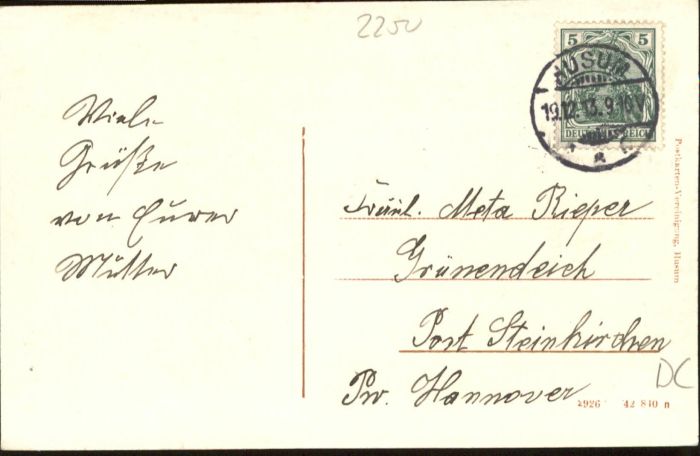 2250
5 5
HUSUM
19.12.13.9-10V
DEUTSCHES REICH
Viele
Grüße
von Eurer
Mutter
Fräul. Meta Rieper
Grünendeich
Post Steinkirchen
Prv. Hannover
Postkarten-Vereinigung, Husum
DC
42 840 n